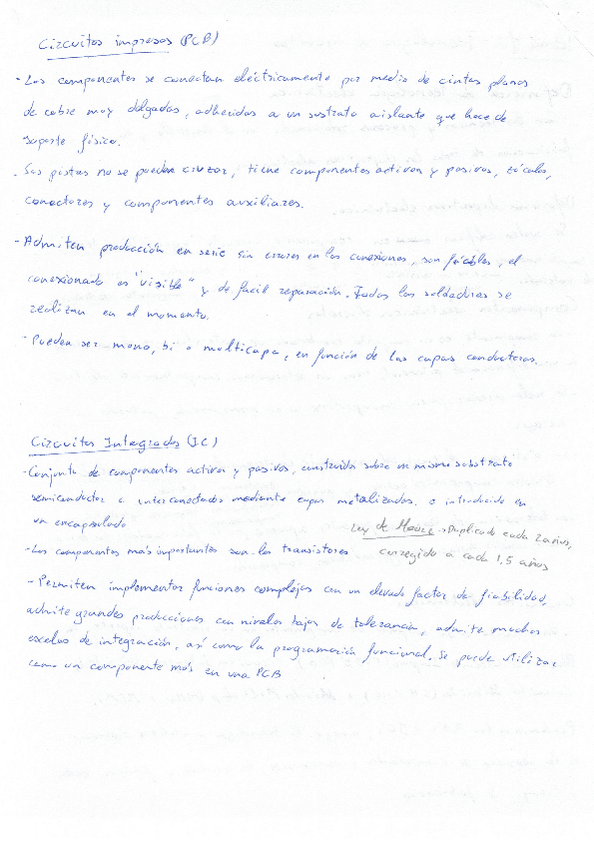 Circuitos impresos (PCB)
- Los componentes se conectan eléctricamente por medio de cintas planas
de cobre muy delgadas, adheridas a un sustrato aislante que hace de
soporte físico.
- Sus pistas no se pueden cruzar, tiene componentes activos y pasivos, zócalos,
conectores y componentes auxiliares.
- Admiten producción en serie sin errores en las conexiones, son fiables, el
conexionado es "visible" y de facil reparación. Todas las soldaduras se
realizan en el momento.
- Pueden ser mono, bi o multicapa, en función de las capas conductoras.
Circuitos Integrados (IC)
- Conjunto de componentes activos y pasivos, construidos sobre un mismo substrato
semiconductor e interconectados mediante capas metalizadas. e introducido en
un encapsulado
Ley de Moore → Duplicado cada 2 años,
corregido a cada 1.5 años
- Los componentes más importantes son los transistores
- Permiten implementar funciones complejas con un elevado factor de fiabilidad,
admite grandes producciones con niveles bajos de tolerancia, admite muchas
escalas de integración, así como la programación funcional. Se puede utilizar
como un componente más en una PCB